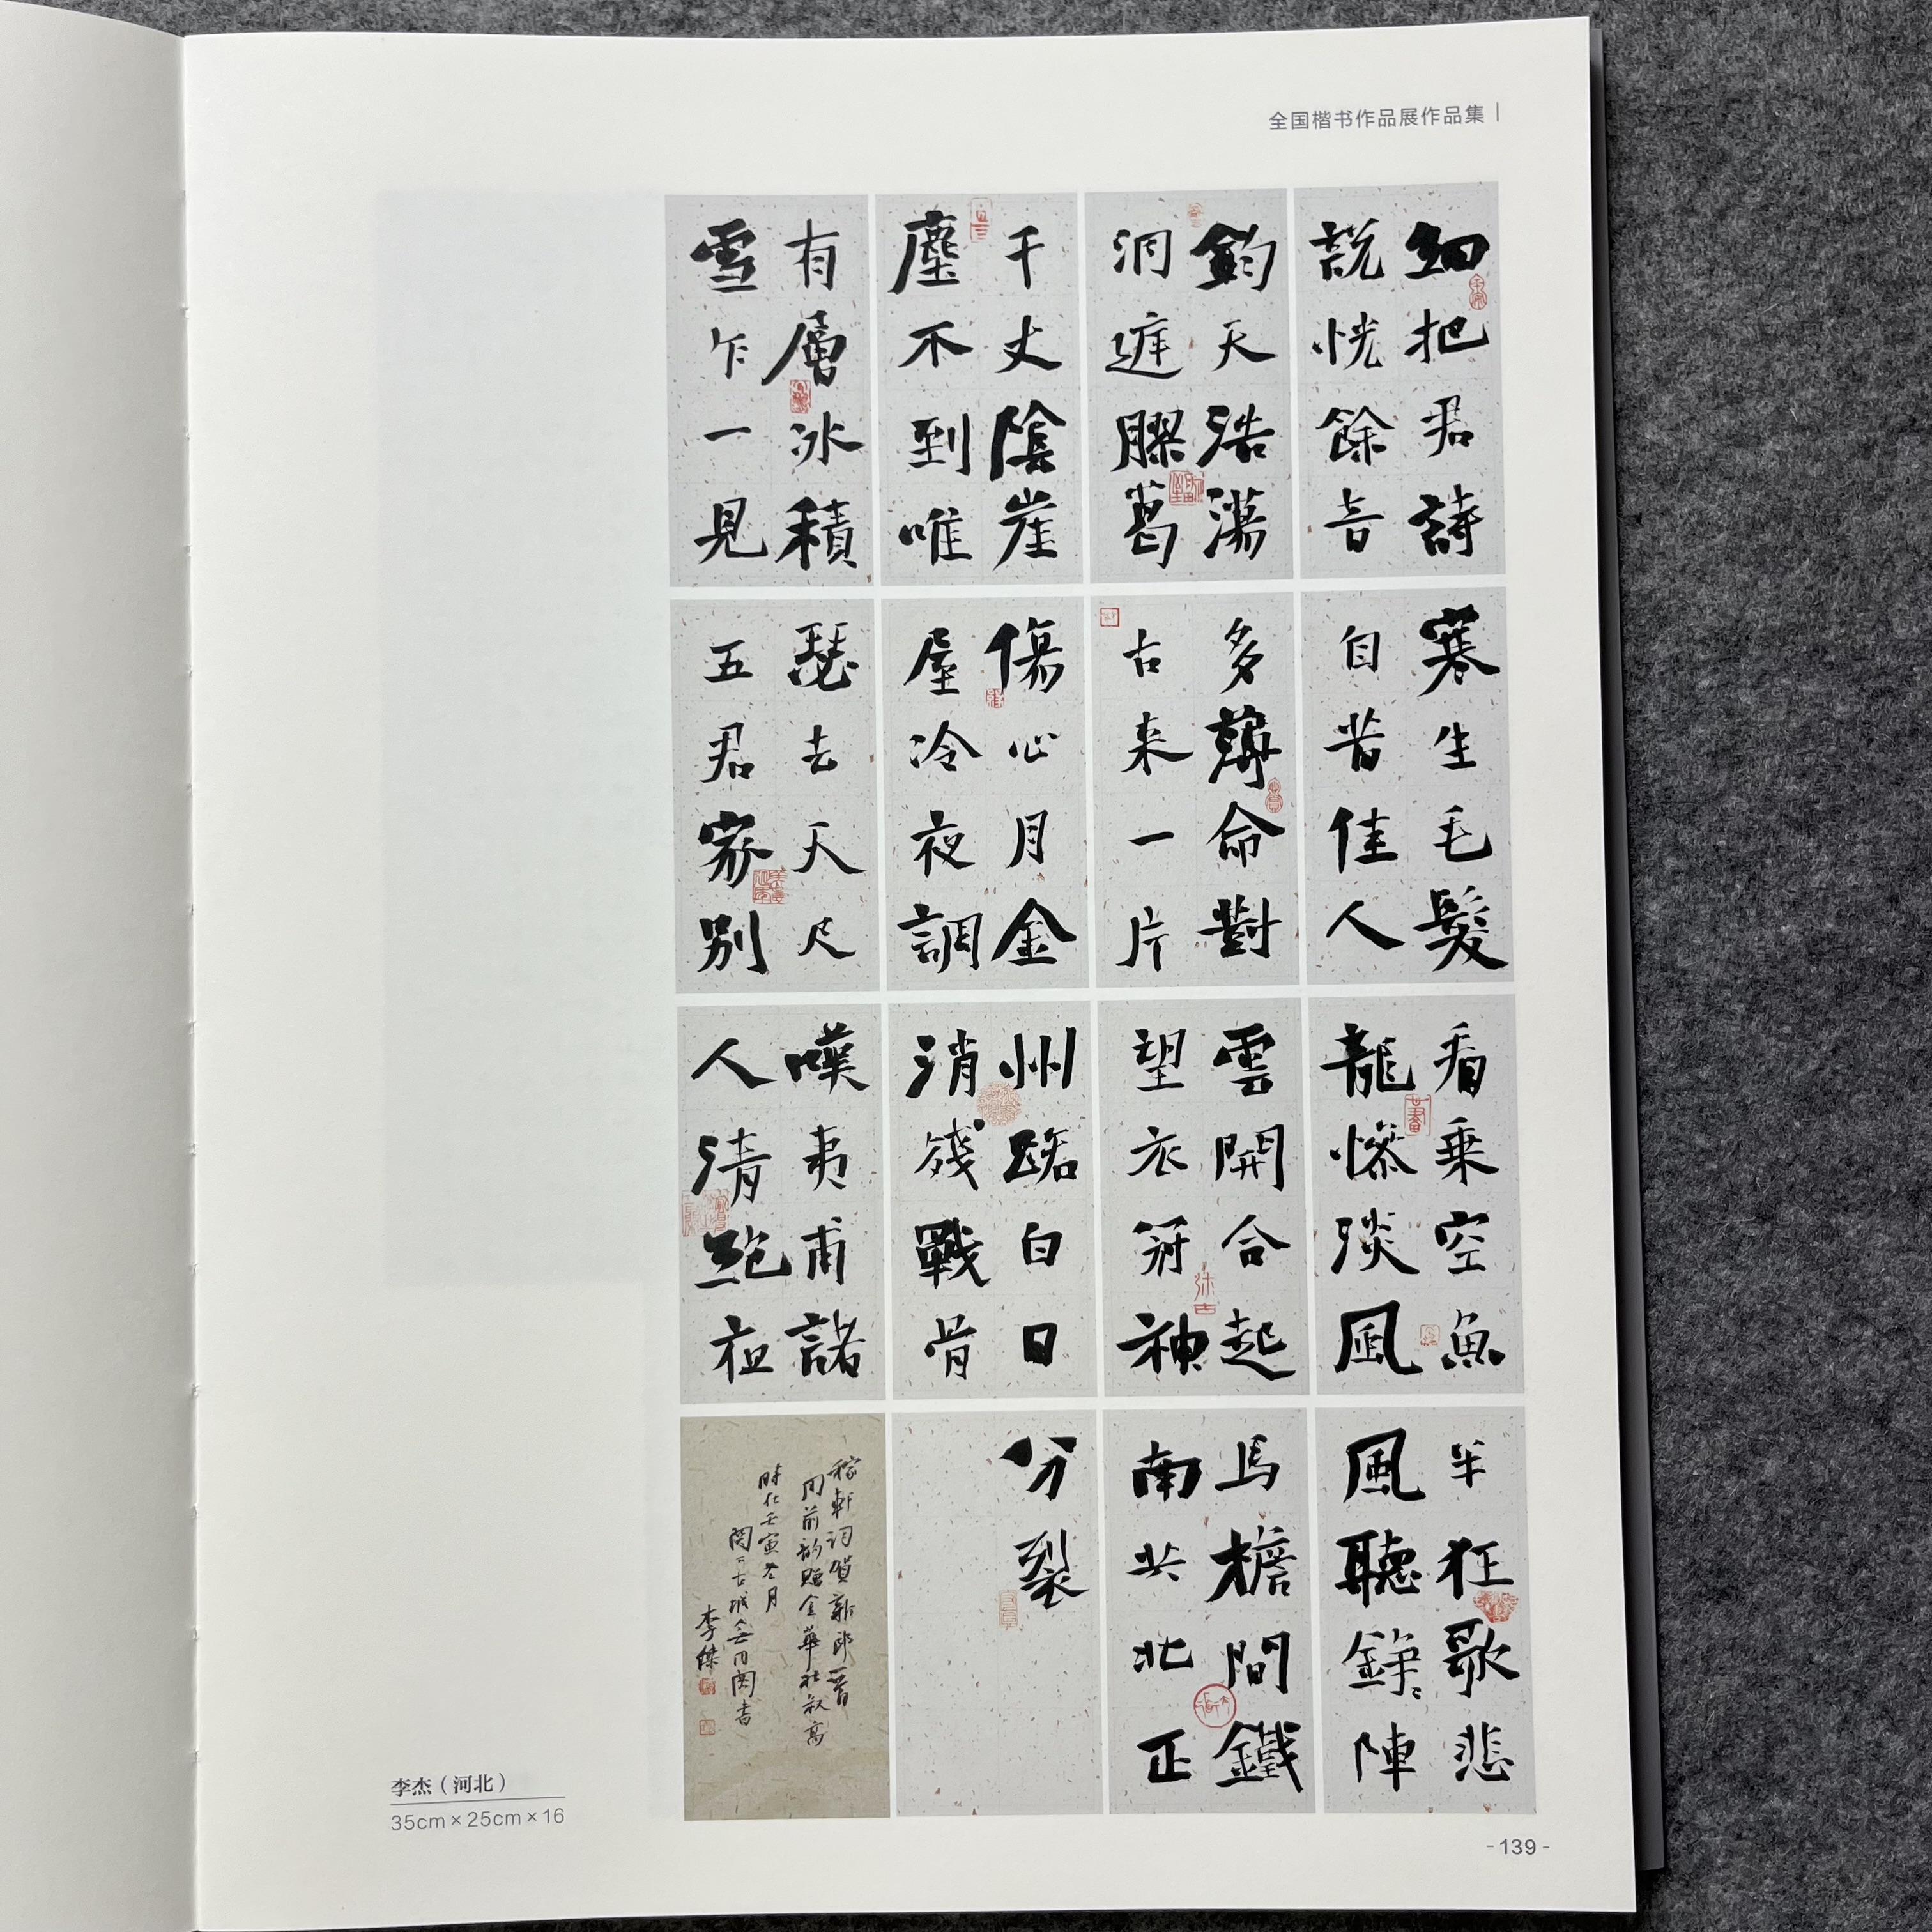 全国楷书作品展作品集
細把君詩
説恍餘音
鈞天浩蕩
洞庭膠葛
千丈陰崖
塵不到唯
有層冰積
雪乍一見
寒生毛髮
自昔佳人
多薄命對
古来一片
傷心月金
屋冷夜調
瑟去天尺
五君家别
看乘空魚
龍慘淡風
雲開合起
望衣冠神
州路白日
消殘戰骨
嘆夷甫諸
人清絶夜
半狂歌悲
風聽錚々陣
馬檐間鐵
南共北正
分裂
稼軒詞賀新郎一首
用前韵贈金華杜叔高
時在壬寅冬月
古城
李傑
李杰（河北）
35cm×25cm×16
-139-